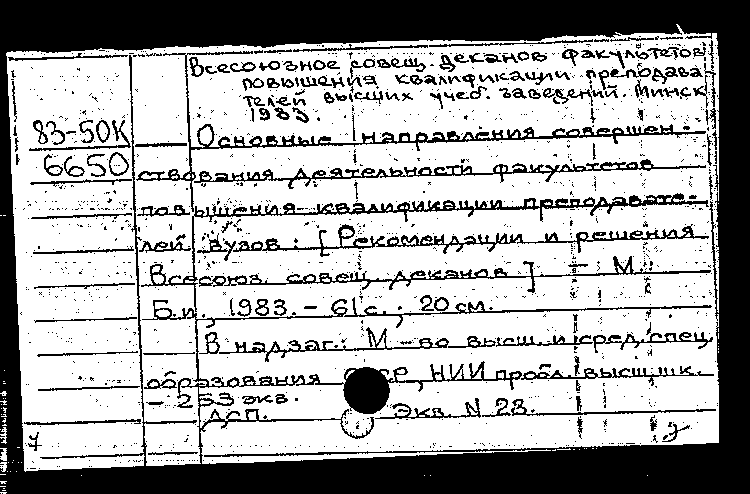 Всесоюзное совещ. деканов факультетов
повышения квалификации преподава-
телей высших учеб. заведений. Минск
1983.
83-50К
6650
Основные направления совершен-
ствования деятельности факультетов
повышения квалификации преподавате-
лей вузов: [Рекомендации и решения
Всесоюз. совещ. деканов] - М.:
Б.и., 1983. - 61 с.; 20 см.
В надзаг.: М-во высш. и сред. спец.
образования СССР, НИИ пробл. высш. шк.
- 253 экз.
ДСП. Экз. N 28.